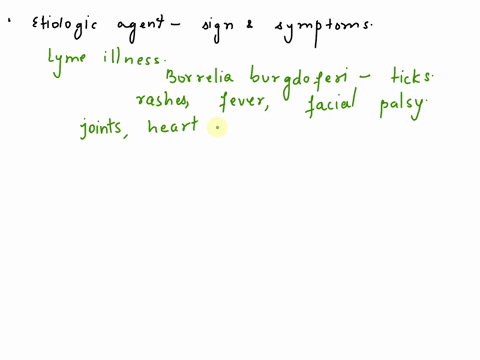 Etiologic agent - sign & symptoms.
Lyme illness.
Borrelia burgdoferi - ticks.
rashes, fever, facial palsy.
joints, heart